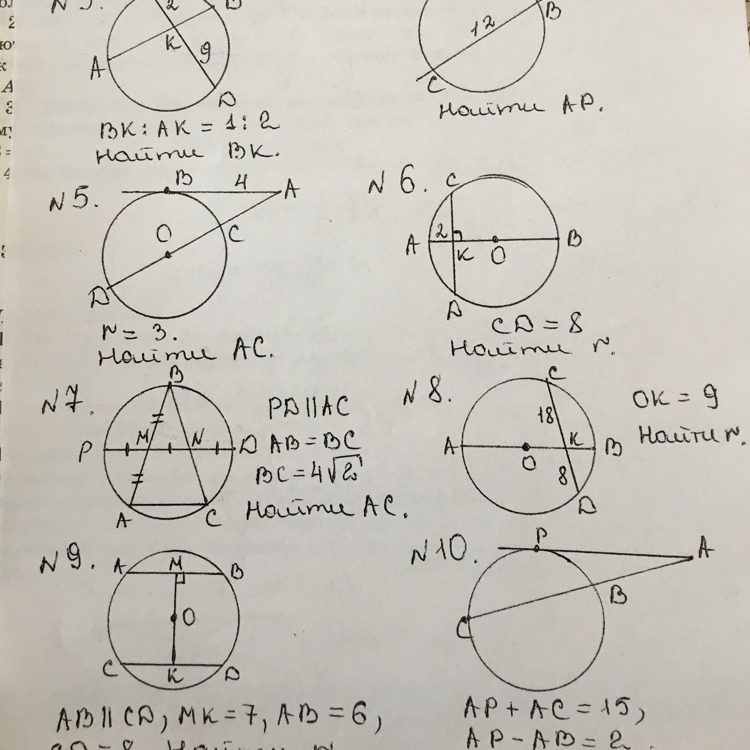 2
B
K
9
A
D
BK : AK = 1 : 2
Найти BK.
12
B
C
Найти AP.
N 5.
B
4
A
O
C
D
r = 3.
Найти AC.
N 6.
C
A
2
K
O
B
D
CD = 8
Найти r.
N 7.
B
P
M
N
D
A
C
PD || AC
AB = BC
BC = 4√2
Найти AC.
N 8.
C
18
A
O
K
B
8
D
OK = 9
Найти r.
N 9.
A
M
B
O
C
K
D
AB || CD, MK = 7, AB = 6,
Найти
N 10.
P
A
B
C
AP + AC = 15,
AP - AB = 2